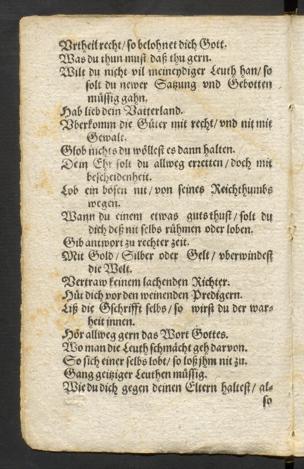 Vrtheil recht/ so belohnet dich Gott.
Was du thun must daß thu gern.
Wilt du nicht vil meineydiger Leuth han/ so
solt du newer Satzung vnd Gebotten
müssig gahn.
Hab lieb dein Vatterland.
Vberkomm die Güter mit recht/ vnd nit mit
Gewalt.
Glob nichts du wöllest es dann halten.
Dein Ehr solt du allweg erretten/ doch mit
bescheidenheit.
Lob ein bösen nit/ von seines Reichthumbs
wegen.
Wann du einem etwas guts thust/ solt du
dich deß nit selbs rühmen oder loben.
Gib antwort zu rechter zeit.
Mit Gold/ Silber oder Gelt/ vberwindest
die Welt.
Vertraw keinem lachenden Richter.
Hüt dich vor den weinenden Predigern.
Liß die Gschrifft selbs/ so wirst du der war-
heit innen.
Hör allweg gern das Wort Gottes.
Wo man die Leuth schmächt geh darvon.
So sich einer selbs lobt/ so loß jhm nit zu.
Gang geitziger Leuthen müssig.
Wie du dich gegen deinen Eltern haltest/ al-
so